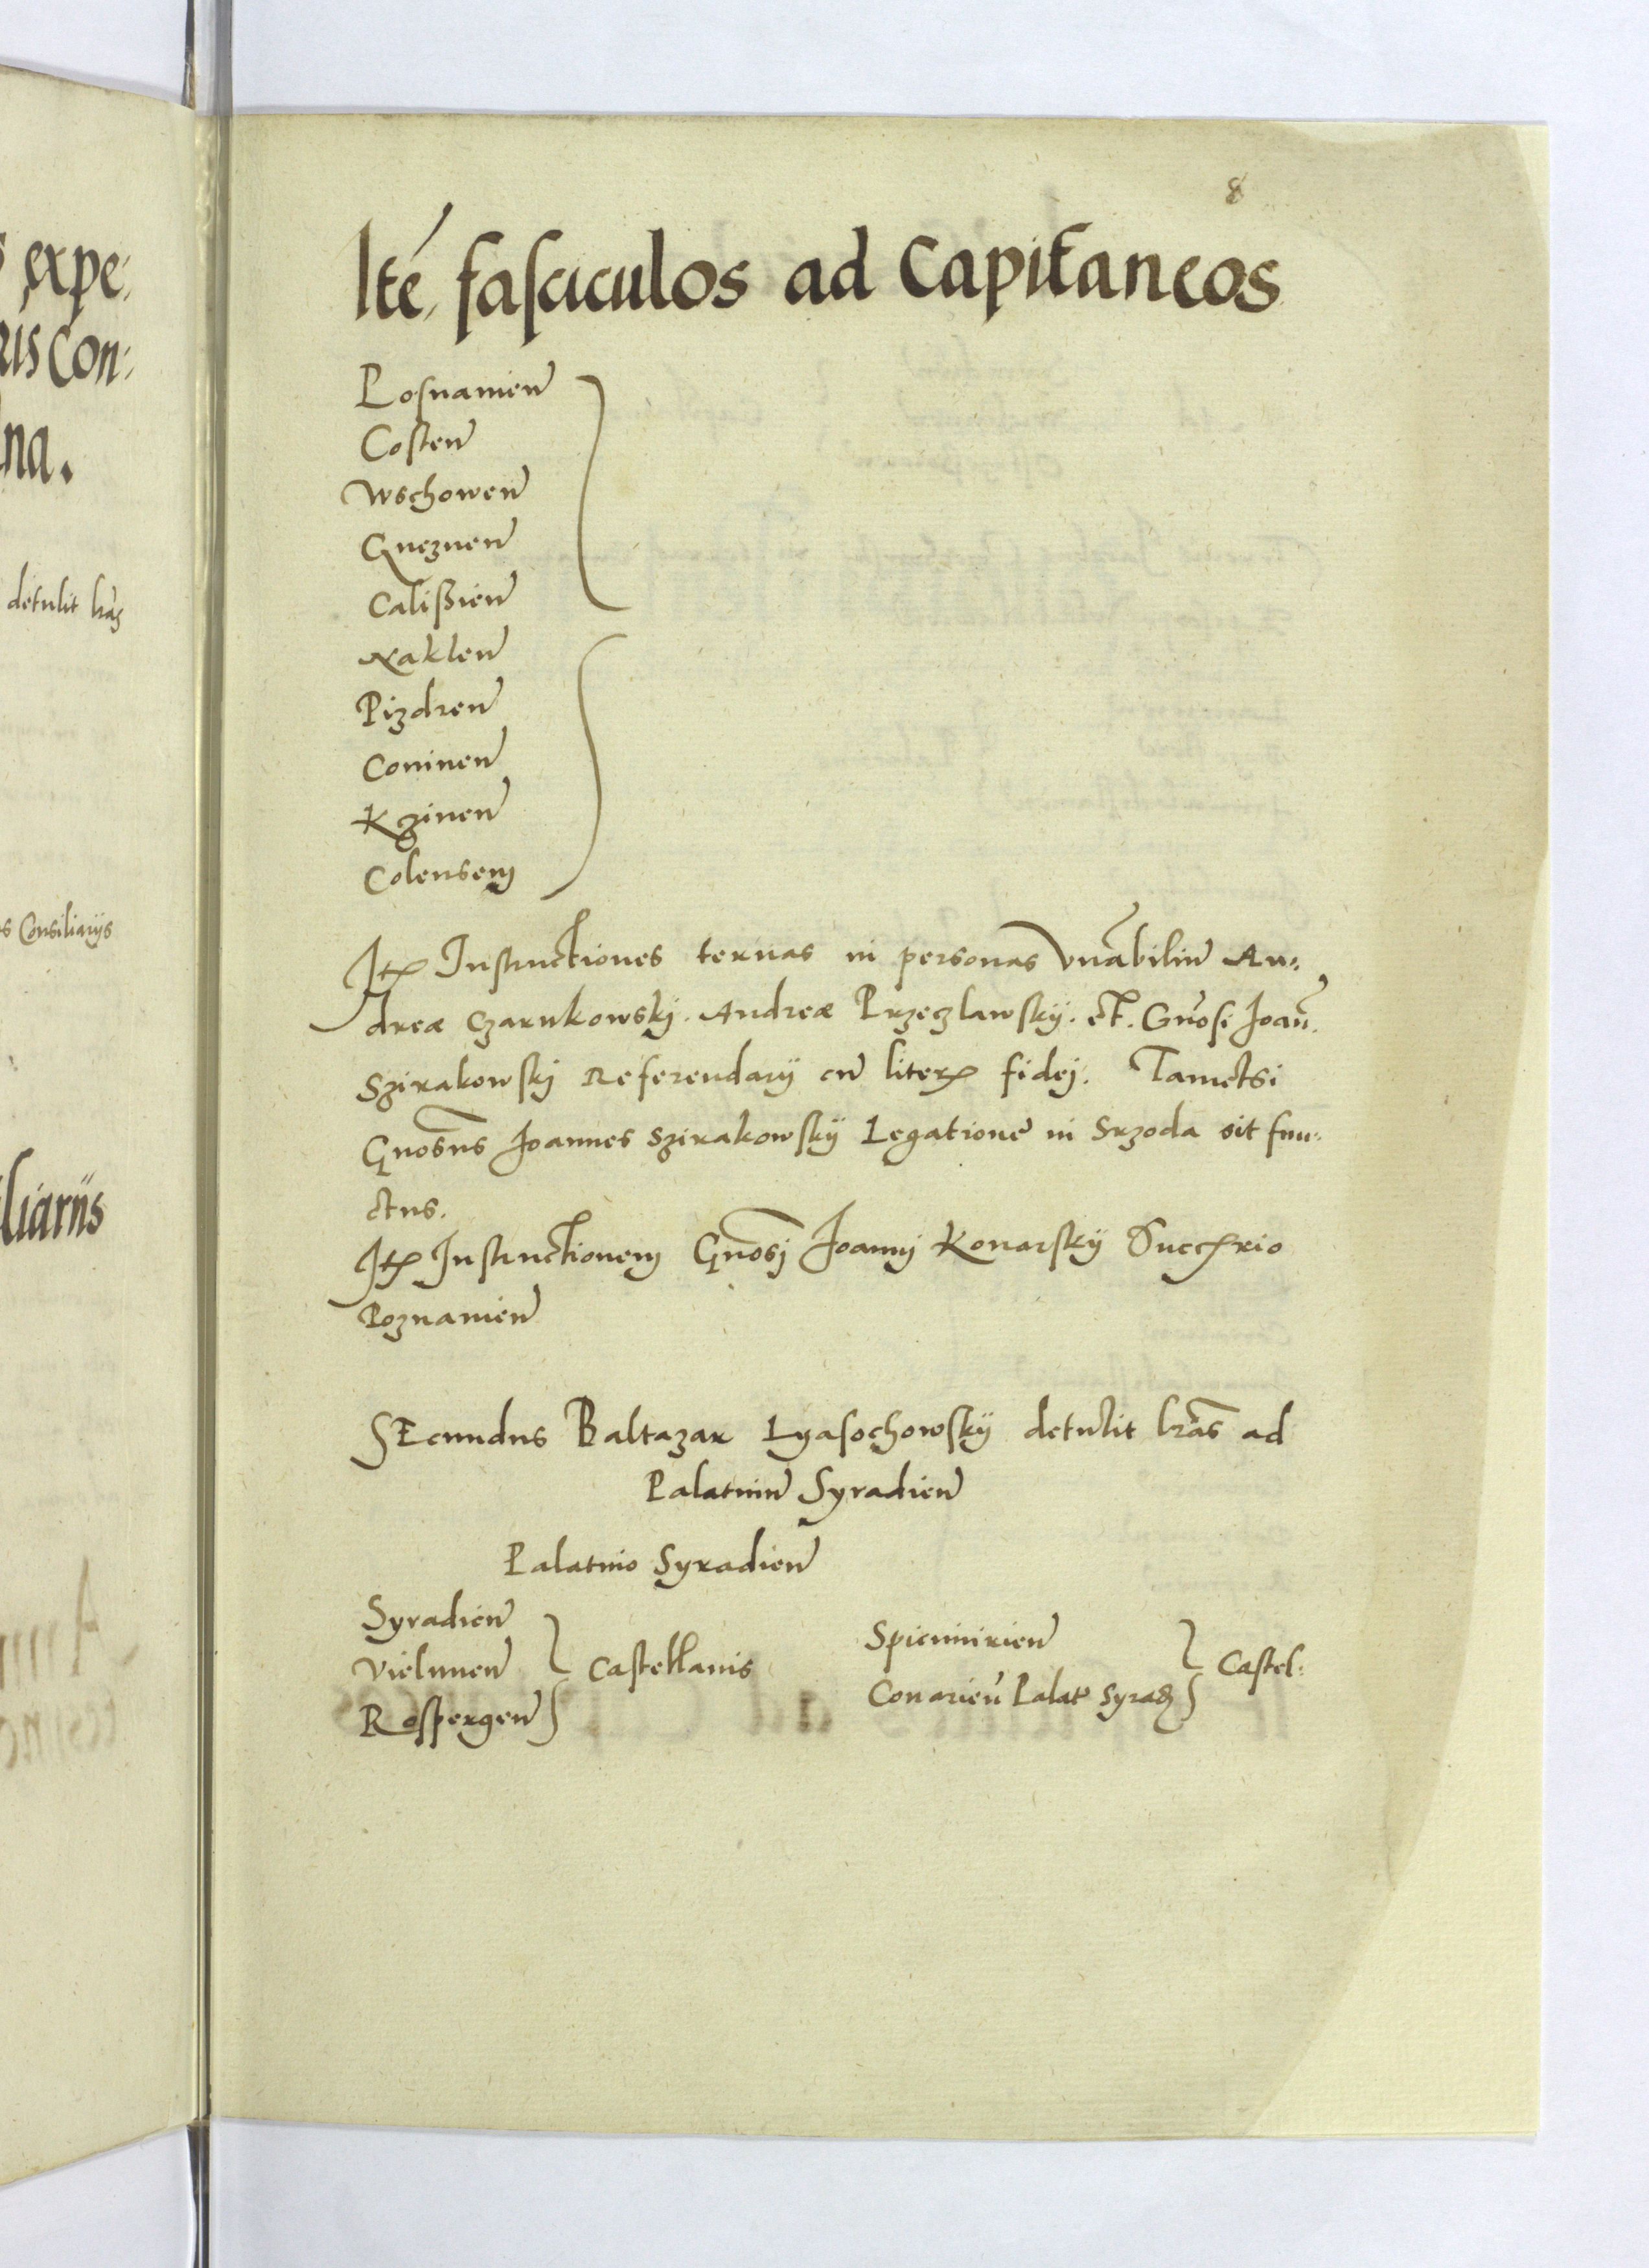 expe:
ris Con:
na.
detulit lr̃as
s Consiliarijs
liariis
8
Ite, fasciculos ad Capitaneos
Posnamien
Costen
Wschowen
Gneznen
Calissien
Naklen
Pizdren
Coninen
Kzinen
Colensem
Itꝫ Instructiones ternas in personas Vnãbiliũ An:
dreæ Czarnkowskj. Andreæ Przeczlawskÿ. et. Gnosi Joañ.
Szirakowskj Referendarÿ cũ literꝫ fidej. Tametsi
Gnosus Joannes Szirakowskÿ Legationẽ in Srzoda sit fun:
ctus.
Itꝫ Instructionem Gnosj Joannj Konarskÿ Succꝫrio
Poznamien
SEcundus Baltazar Lyasochowskÿ detulit lr̃as ad
Palatinũ Syradien
Palatino Syradien
Syradien
Vielunen Castellanis
Rospergen
Spicimirien
Conarień Palat Syradꝫ Castel: